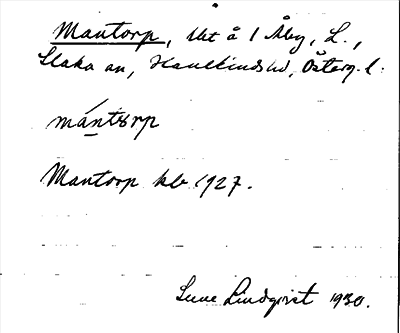 Mantorp, Utå i Åby, L.,
Slaka sn, Hanekinds hd, Österg. l.
mántorp
Mantorp kb 1927.
Sune Lindqvist 1930.